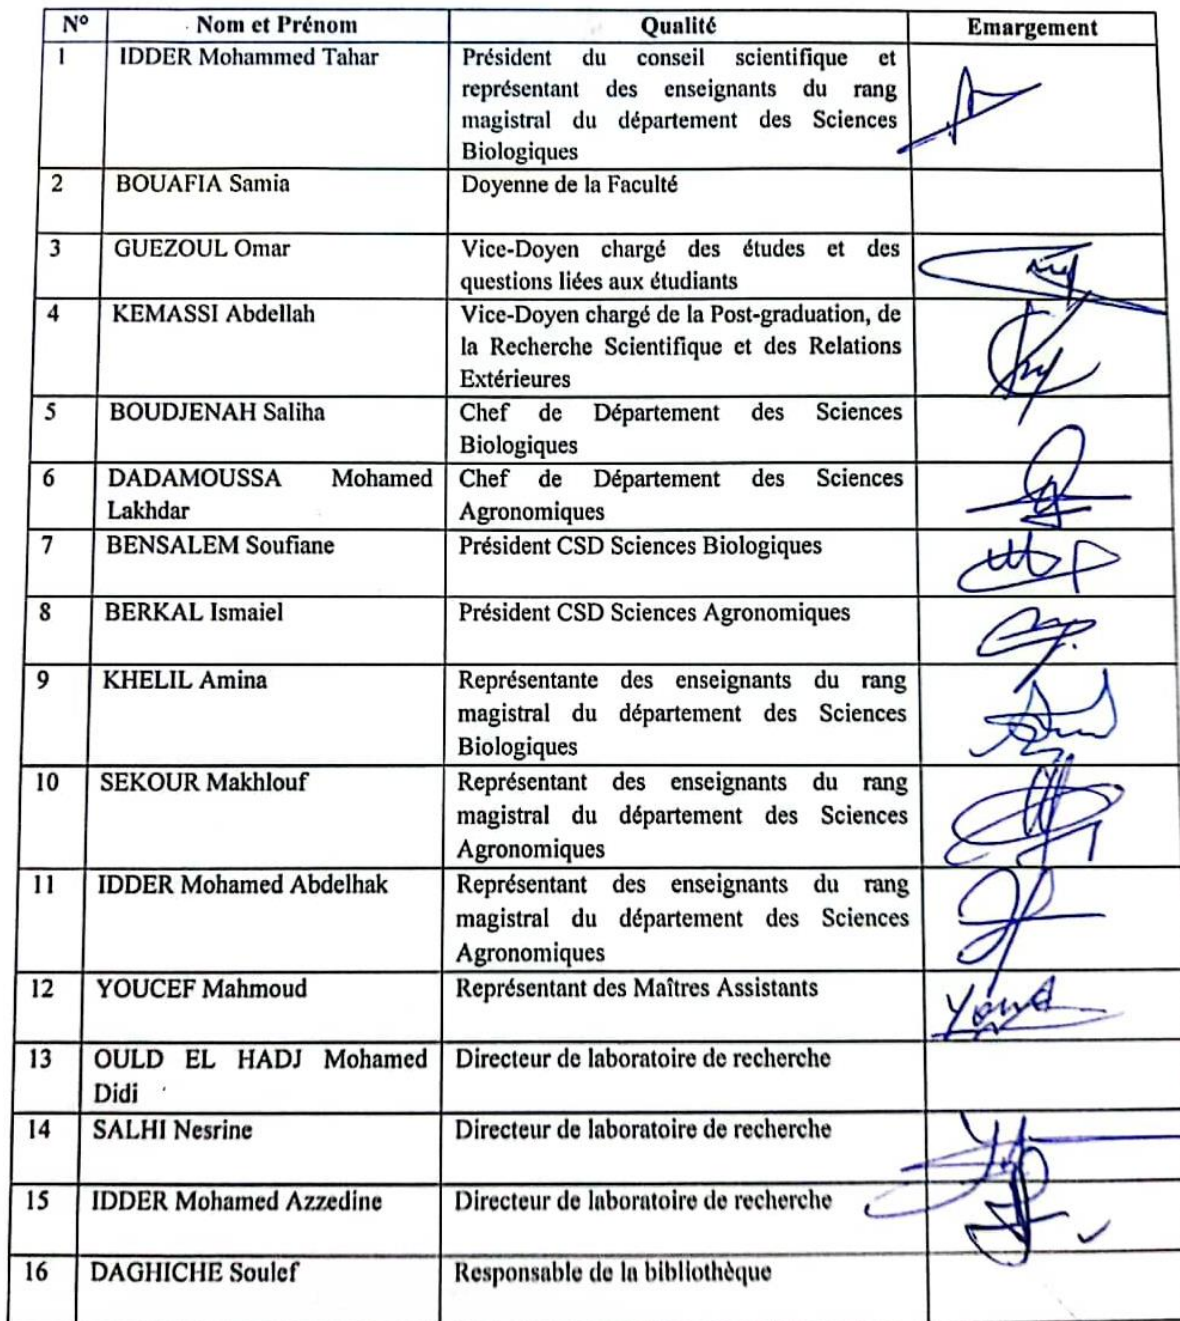 N° Nom et Prénom Qualité Emargement
1 IDDER Mohammed Tahar Président du conseil scientifique et
représentant des enseignants du rang
magistral du département des Sciences
Biologiques
2 BOUAFIA Samia Doyenne de la Faculté
3 GUEZOUL Omar Vice-Doyen chargé des études et des
questions liées aux étudiants
4 KEMASSI Abdellah Vice-Doyen chargé de la Post-graduation, de
la Recherche Scientifique et des Relations
Extérieures
5 BOUDJENAH Saliha Chef de Département des Sciences
Biologiques
6 DADAMOUSSA Mohamed Chef de Département des Sciences
Lakhdar Agronomiques
7 BENSALEM Soufiane Président CSD Sciences Biologiques
8 BERKAL Ismaiel Président CSD Sciences Agronomiques
9 KHELIL Amina Représentante des enseignants du rang
magistral du département des Sciences
Biologiques
10 SEKOUR Makhlouf Représentant des enseignants du rang
magistral du département des Sciences
Agronomiques
11 IDDER Mohamed Abdelhak Représentant des enseignants du rang
magistral du département des Sciences
Agronomiques
12 YOUCEF Mahmoud Représentant des Maîtres Assistants
13 OULD EL HADJ Mohamed Directeur de laboratoire de recherche
Didi
14 SALHI Nesrine Directeur de laboratoire de recherche
15 IDDER Mohamed Azzedine Directeur de laboratoire de recherche
16 DAGHICHE Soulef Responsable de la bibliothèque